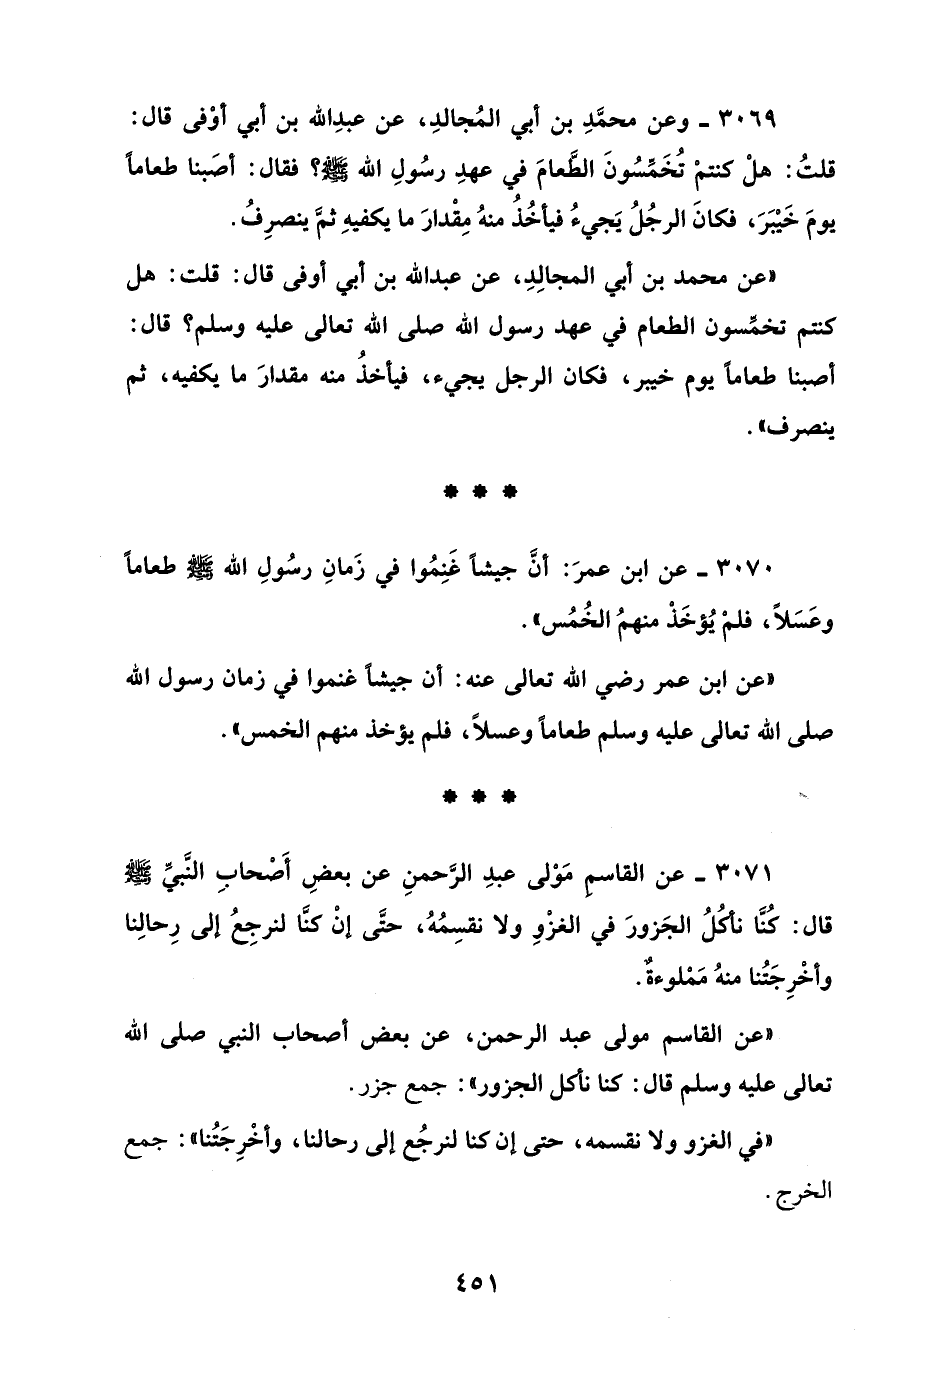 ٣٠٦٩ ـ وعن محمَّدِ بن أبي المُجالدِ، عن عبدِالله بن أبي أوْفى قال:
قلتُ: هلْ كنتمْ تُخَمِّسُونَ الطَّعامَ في عهدِ رسُولِ الله ﷺ؟ فقال: أصَبنا طعاماً
يومَ خَيْبَرَ، فكانَ الرجُلُ يَجيءُ فيأخُذُ منهُ مِقْدارَ ما يكفيهِ ثمَّ ينصرِفُ.
«عن محمد بن أبي المجالِدِ، عن عبدالله بن أبي أوفى قال: قلت: هل
كنتم تخمِّسون الطعام في عهد رسول الله صلى الله تعالى عليه وسلم؟ قال:
أصبنا طعاماً يوم خيبر، فكان الرجل يجيء، فيأخُذُ منه مقدارَ ما يكفيه، ثم
ينصرف».
* * *
٣٠٧٠ ـ عن ابن عمرَ: أنَّ جيشاً غَنِمُوا في زَمانِ رسُولِ الله ﷺ طعاماً
وعَسَلاً، فلمْ يُؤخَذْ منهمُ الخُمُس».
«عن ابن عمر رضي الله تعالى عنه: أن جيشاً غنموا في زمان رسول الله
صلى الله تعالى عليه وسلم طعاماً وعسلاً، فلم يؤخذ منهم الخمس».
* * *
٣٠٧١ ـ عن القاسمِ مَوْلى عبدِ الرَّحمنِ عن بعضِ أَصْحابِ النَّبيِّ ﷺ
قال: كُنَّا نأكُلُ الجَزورَ في الغزْوِ ولا نقسِمُهُ، حتَّى إنْ كنَّا لنرجِعُ إلى رِحالِنا
وأخْرِجَتُنا منهُ مَمْلوءةٌ.
«عن القاسم مولى عبد الرحمن، عن بعض أصحاب النبي صلى الله
تعالى عليه وسلم قال: كنا نأكل الجزور»: جمع جزر.
«في الغزو ولا نقسمه، حتى إن كنا لنرجُع إلى رحالنا، وأخْرِجَتُنا»: جمع
الخرج.
٤٥١